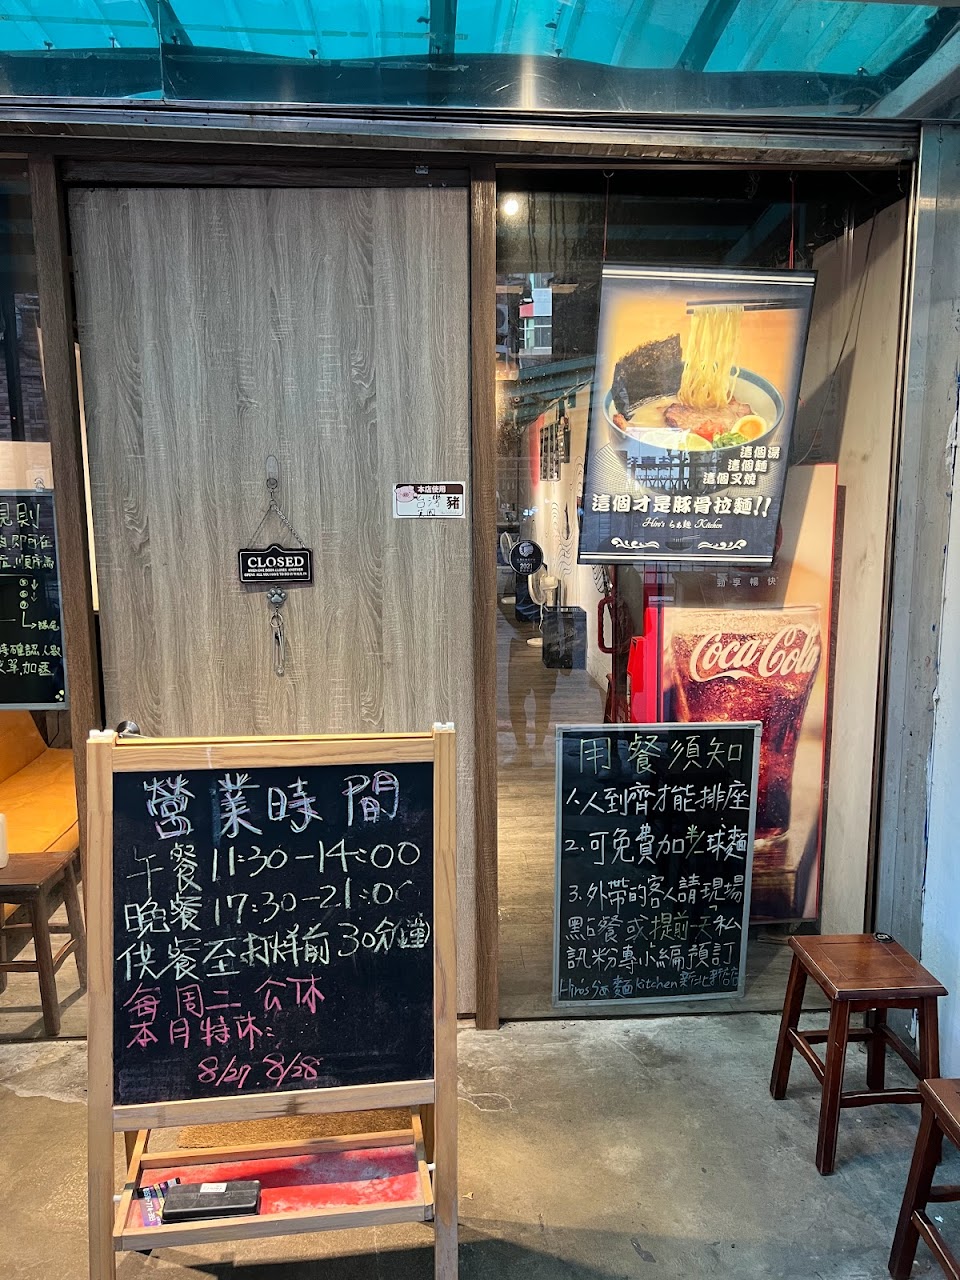 本店使用
台灣
豬
CLOSED
這個湯
這個麵
這個叉燒
這個才是豚骨拉麵!!
Hiro's らぁ麺 Kitchen
2021
勁享暢快
Coca-Cola
規則
即可在
順序為
→隊尾
確認人數
菜單,加速
營業時間
午餐 11:30-14:00
晚餐 17:30-21:00
供餐至打烊前30分鐘
每周二公休
本月特休:
8/27.8/28
用餐須知
1.人到齊才能排座
2.可免費加半球麵
3.外帶的客人請現場
點餐或提前一天私
訊粉專小編預訂
Hiro's らぁ麵 Kitchen 新北新店店